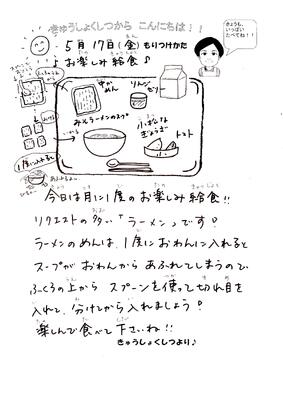 きゅうしょくしつから こんにちは!!
きょうも、
いっぱい
たべてね!!
5月17日(金)もりつけかた
♪お楽しみ給食♪
中かめん
りんごゼリー
みそラーメンのスープ
小松な
ぎょうざ
トマト
今日は月に1度のお楽しみ給食!!
リクエストの多い「ラーメン」です!
ラーメンのめんは、1度におわんに入れると
スープがおわんからあふれてしまうので、
ふくろの上からスプーンを使って切れ目を
入れて、分けてから入れましょう!
楽しんで食べて下さいね!!
きゅうしょくしつより♪